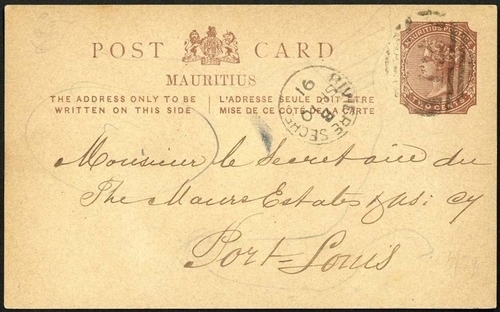 POST CARD
MAURITIUS
THE ADDRESS ONLY TO BE
WRITTEN ON THIS SIDE
L'ADRESSE SEULE DOIT ÊTRE
MISE DE CE CÔTÉ DE LA CARTE
MAURITIUS POSTAGE
TWO CENTS
RIVIERE SECHE
91
Monsieur le Secretaire du
The Maurs Estates & Asi Cy
Port-Louis